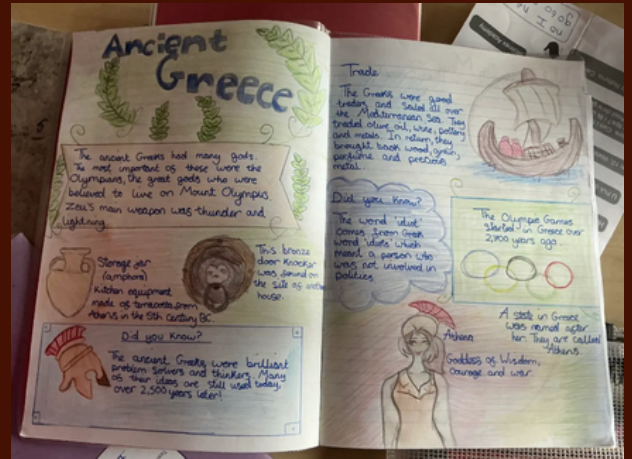 Ancient
Greece
The ancient Greeks had many gods.
The most important of these were the
Olympians, the great gods who were
believed to live on Mount Olympus.
Zeus main weapon was thunder and
lightning.
Storage jar
(amphora)
Kitchen equipment
made of terracotta from
Athens in the 5th Century BC.
This bronze
door knocker
was found on
the site of
house.
Did you know?
The ancient Greeks were brilliant
problem solvers and thinkers. Many
of their ideas are still used today,
over 2,500 years later!
Trade
The Greeks were good
traders and sailed all over
the Mediterranean Sea. They
traded olive oil, wine, pottery
and metals. In return, they
brought back wood, grain,
perfume and precious
metal.
Did you know?
The word 'idiot'
comes from Greek
word 'idiots' which
meant a person who
was not involved in
politics
The Olympic Games
started in Greece over
2,700 years ago.
A state in Greece
was named after
her. They are called
Athens.
Athena
Goddess of Wisdom,
Courage and war
no I
go to
Academy